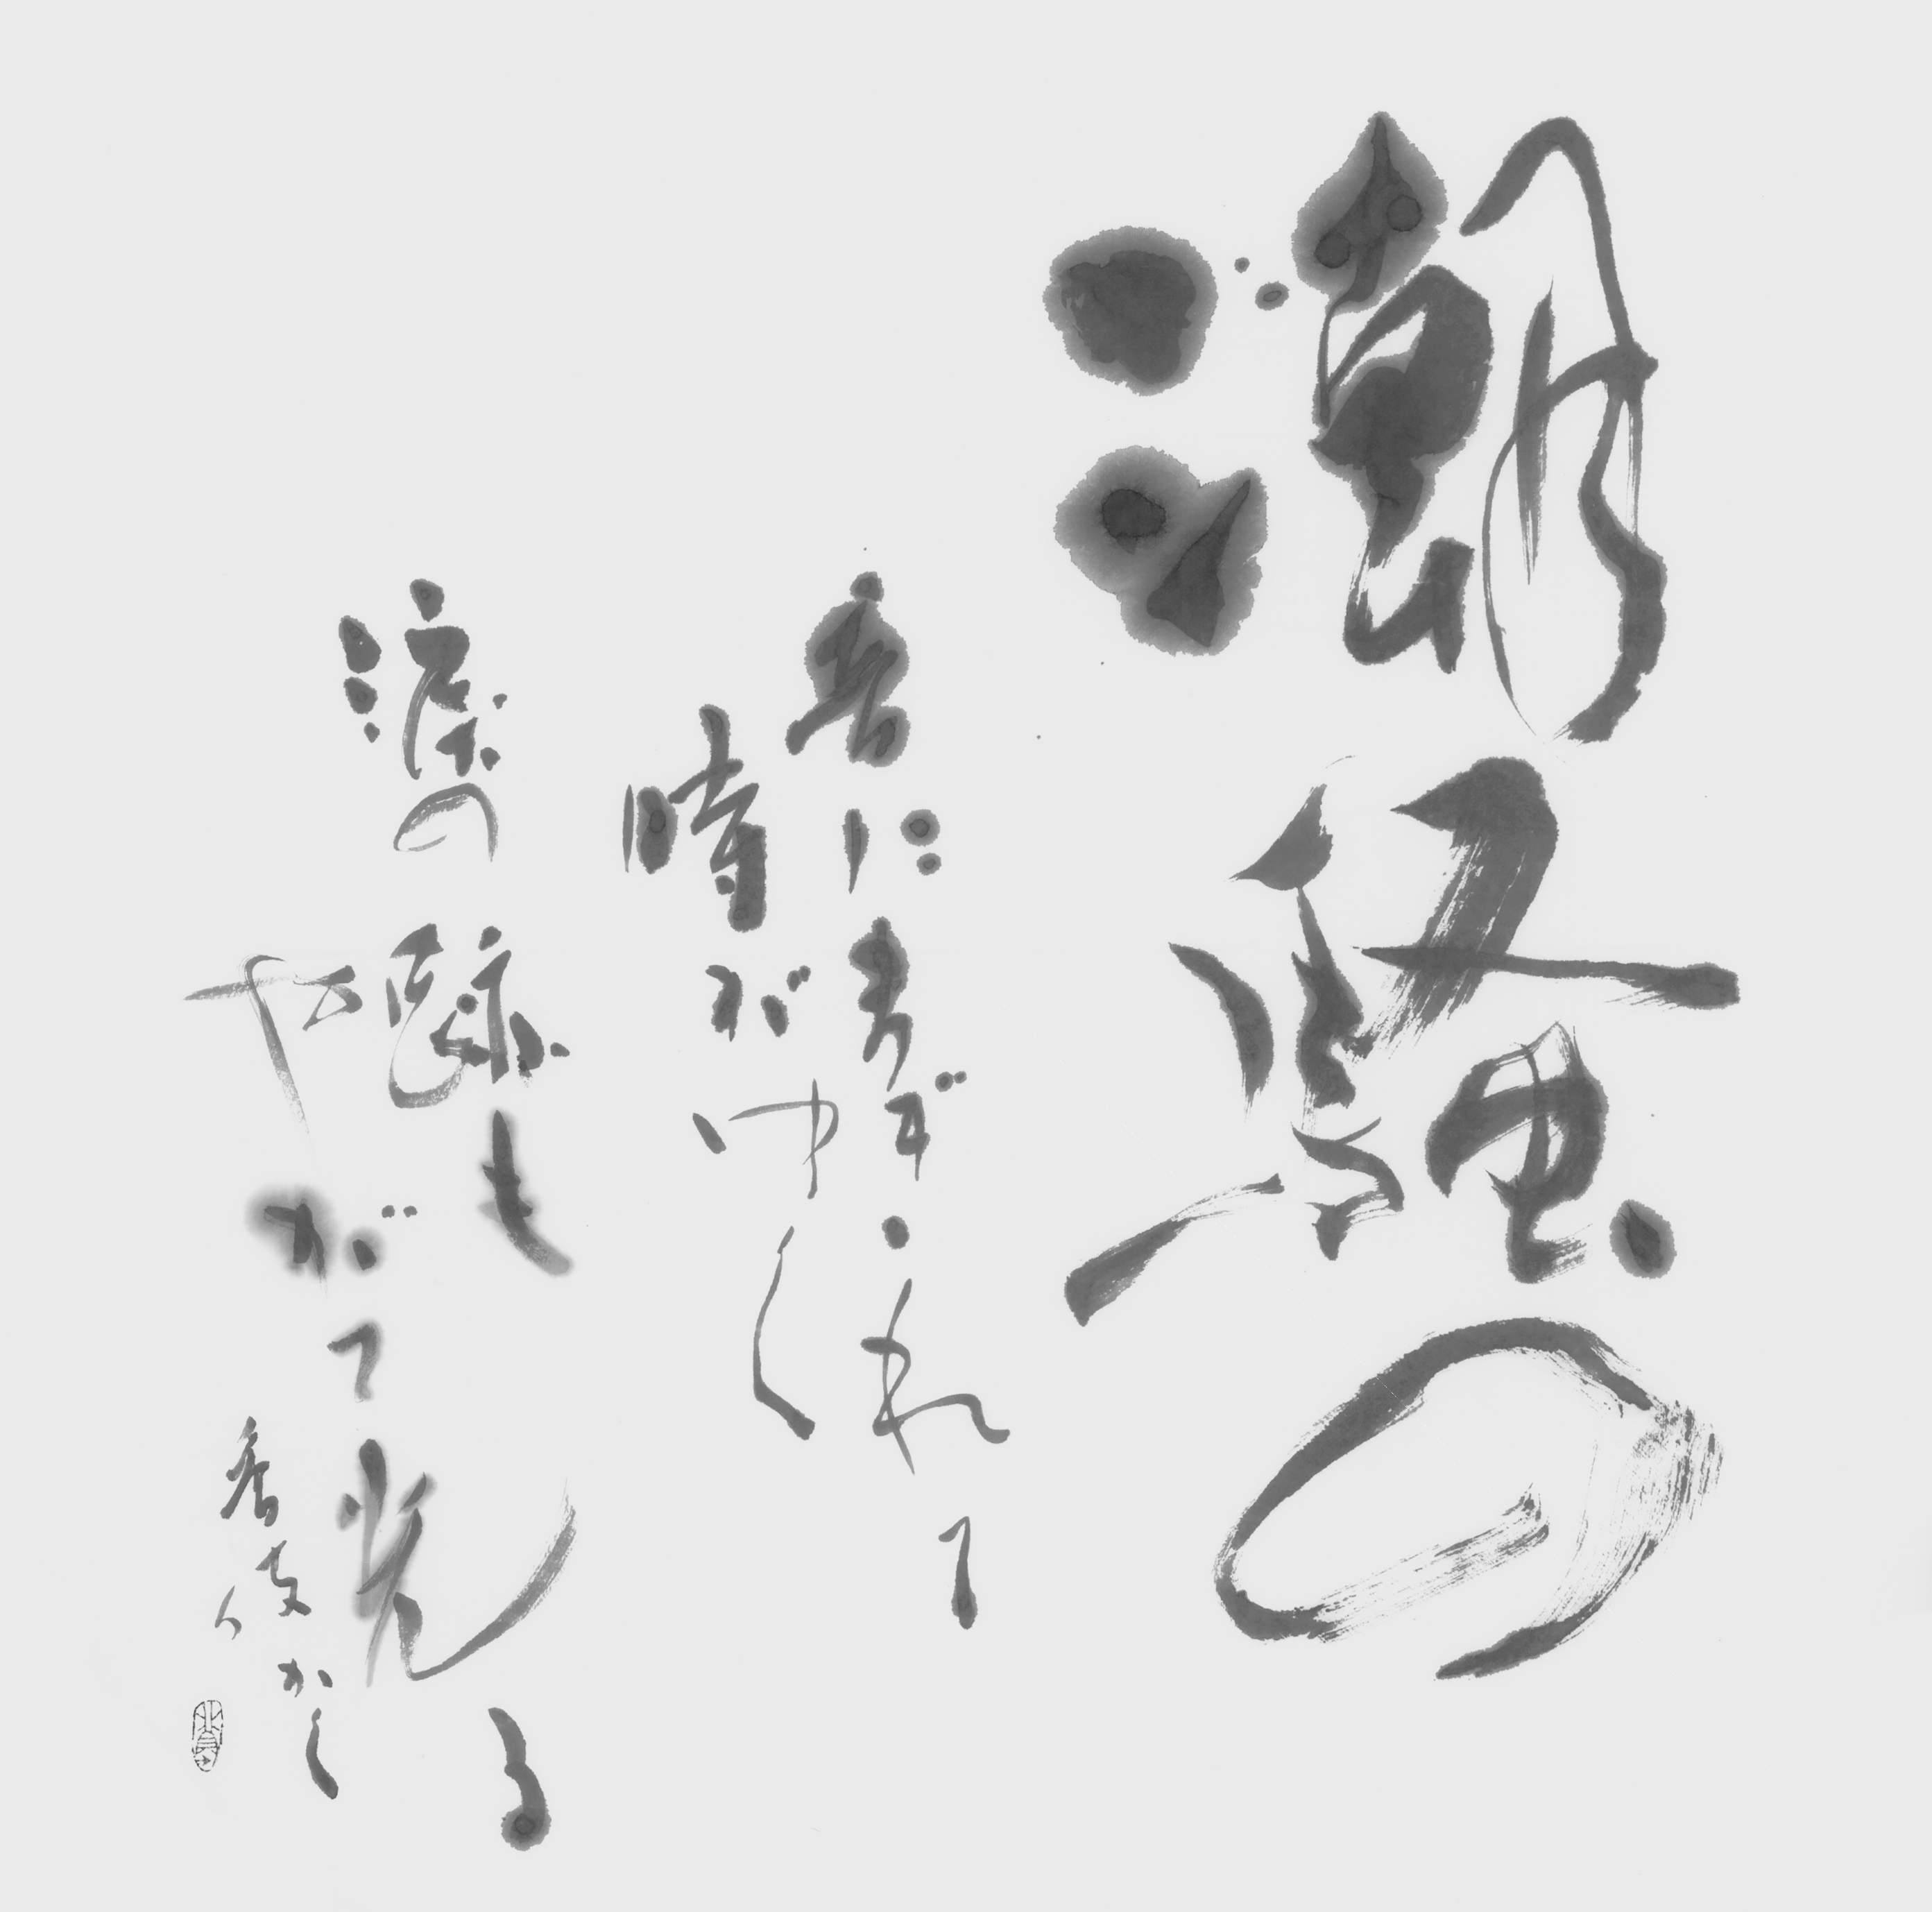 潮騒の
音にまぎれて
時がゆく
涙の跡も
やがて光る